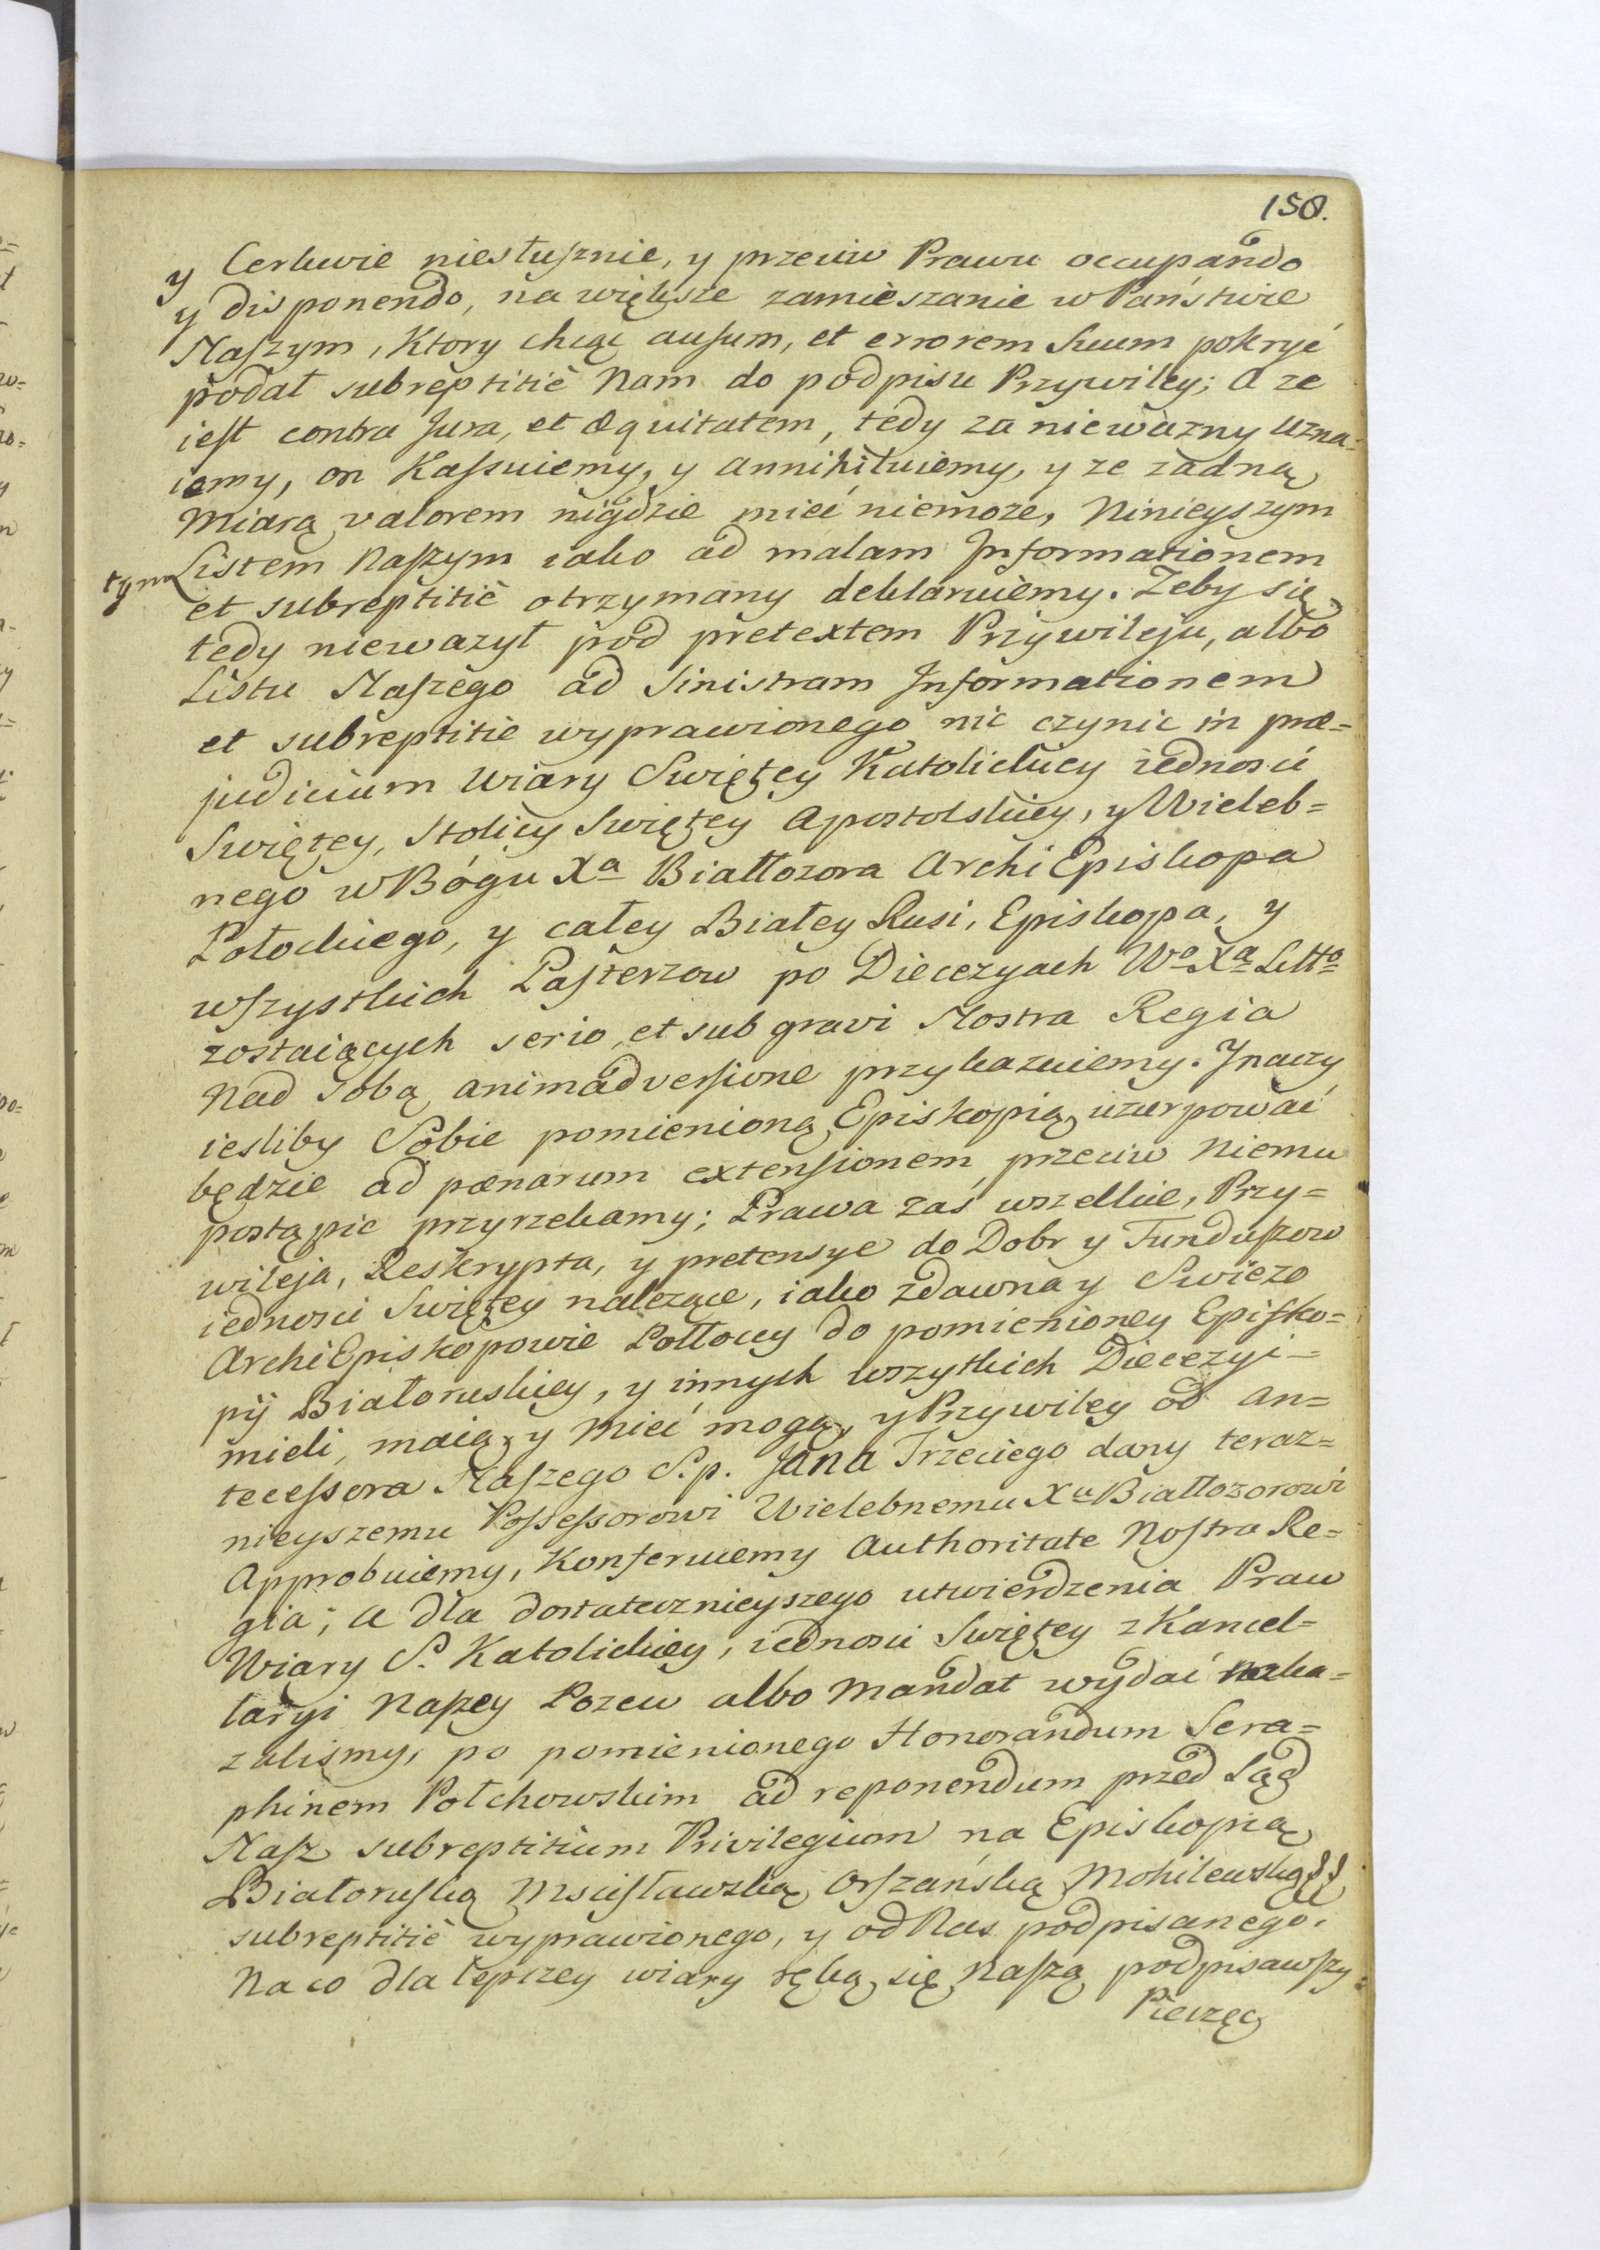 158.
y Cerkwie niesłusznie, y przeciw Prawu occupando
y disponendo, na większe zamieszanie w Państwie
Naszym, Ktory chcąc ausum, et errorem Suum pokryć
podał subreptitiè Nam do podpisu Przywiley; A ze
iest contra Jura, et æquitatem, tedy za niewazny uzna-
iemy, on Kassuiemy, y annihiluiemy, y ze zadną
Miarą valorem nigdzie mieć niemoze, Ninieyszym
tym Listem Naszym iako ad malam Informationem
et subreptitiè otrzymany deklaruiemy. Zeby się
tedy niewazył pod pretextem Przywileju, albo
Listu Naszego ad Sinistram Informationem
et subreptitie wyprawionego nic czynic in præ=
judicium Wiary Swiętey Katolickiey iednosci
Swiętey, Stolicy Swiętey Apostolskiey, y Wieleb=
nego w Bogu Xa Białłozora ArchiEpiskopa
Połockiego, y całey Białey Rusi, Episkopa, y
wszystkich Pasterzow po Diecezyach Wo Xa Litto
zostaiących serio, et sub gravi Nostra Regia
Nad Sobą animadversione przykazuiemy. Inaczy
iesliby Sobie pomienioną Episkopią uzurpować
będzie ad pœnarum extensionem przeciw Niemu
postąpic przyrzekamy; Prawa zaś wszelkie, Przy=
wileja, Reskrypta, y pretensye do Dobr y Funduszow
iednosci Swiętey nalezące, iako zdawna y Swiezo
ArchiEpiskopowie Połłoccy do pomienioney Episko=
pij Białoruskiey, y innych wszytkich Diecezyi=
mieli, maią, y Mieć mogą, y Przywiley od an=
tecessora Naszego S.p. Jana Trzeciego dany teraz=
nieyszemu Possessorowi Wielebnemu Xu Białłozorowi
Approbuiemy, Konferuiemy Authoritate Nostra Re=
gia; A dla dostatecznieyszego utwierdzenia Praw
Wiary S. Katolickiey, iednosci Swiętey z Kancel=
laryi Naszey Pozew albo Mandat wydać naka=
zalismy, po pomienionego Honorandum Sera=
phinem Połchowskim ad reponendum przed Sąd
Nasz subreptitium Privilegium na Episkopią
Białoruską Mscisławską Orszańską Mohilewską
subreptitiè wyprawionego, y od Nas podpisanego.
Na co dla lepszey wiary ręką się Naszą podpisawszy
Pieczęc